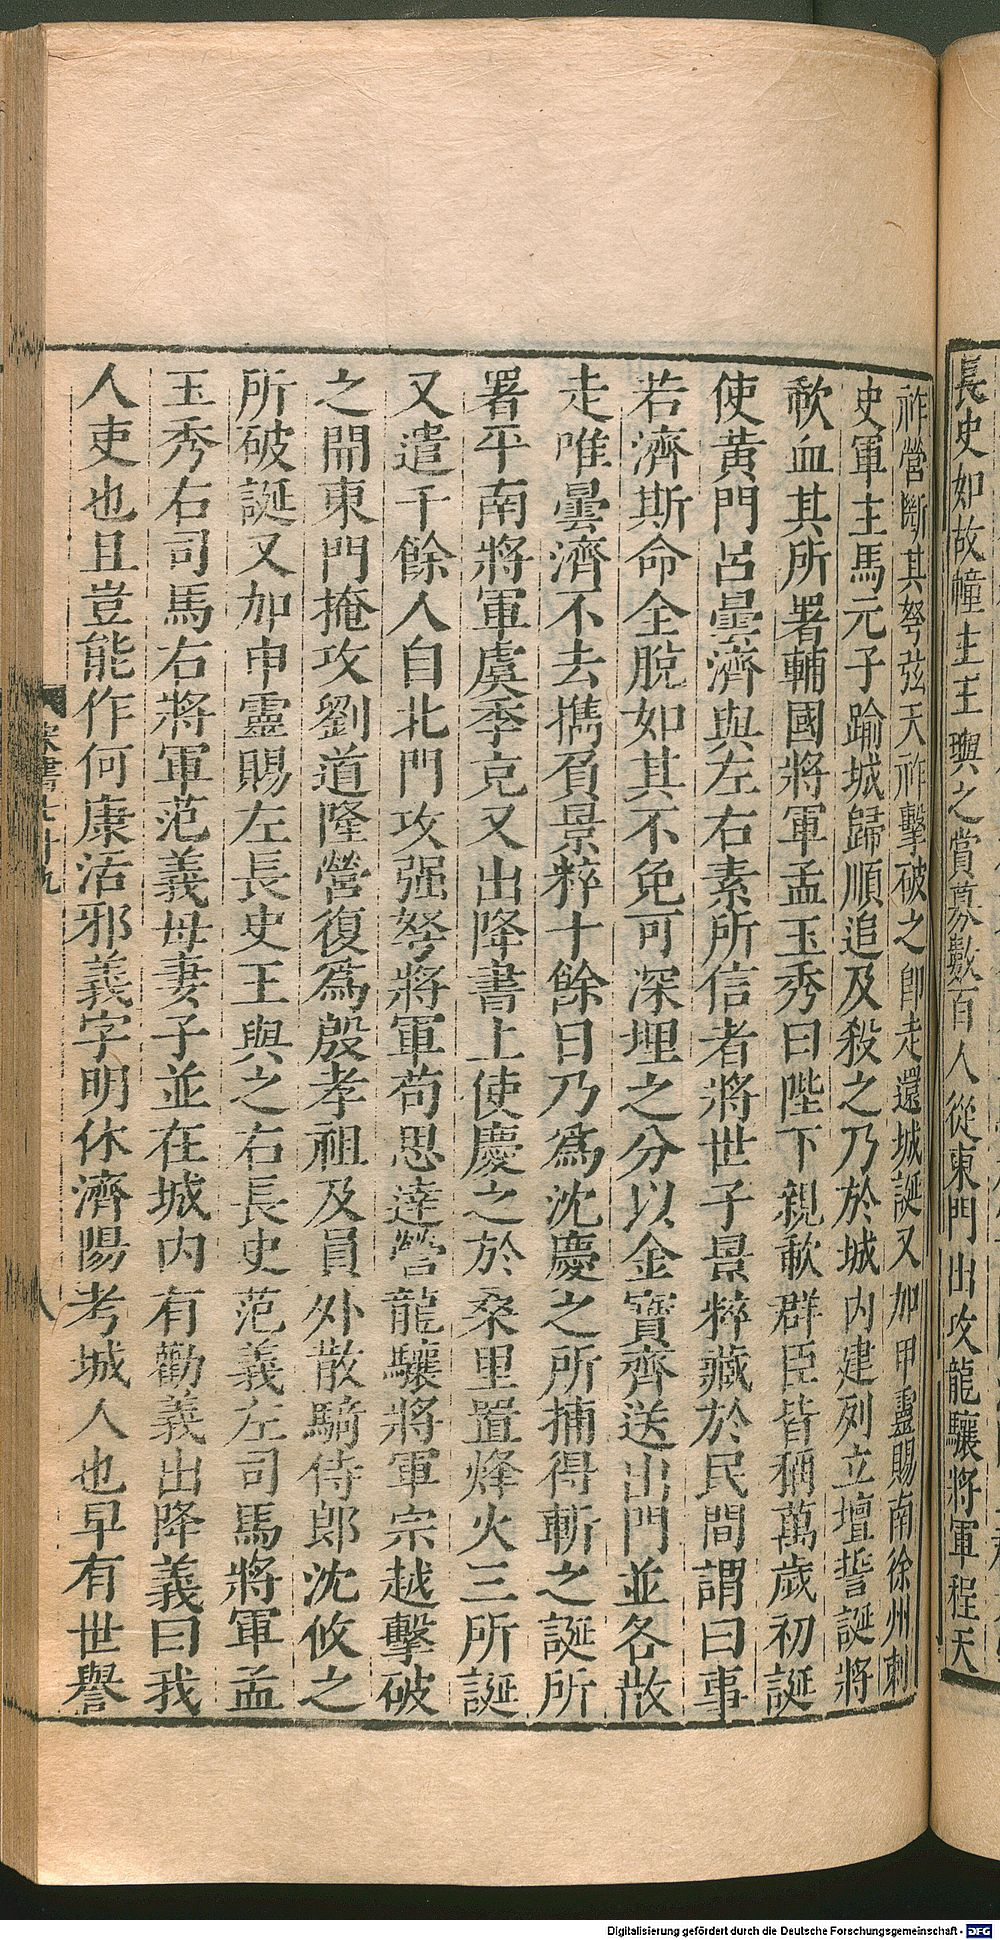 長史如故幢主王璵之賞募數百人從東門出攻龍驤將軍程天
祚營斷其弩弦天祚擊破之卽走還城誕又加申靈賜南徐州刺
史軍主馬元子踰城歸順追及殺之乃於城內建列立壇誓誕將
歃血其所署輔國將軍孟玉秀曰陛下親歃群臣皆稱萬歲初誕
使黃門呂曇濟與左右素所信者將世子景粹藏於民間謂曰事
若濟斯命全脫如其不免可深埋之分以金寶齊送出門並各散
走唯曇濟不去擕負景粹十餘日乃爲沈慶之所捕得斬之誕所
署平南將軍虞季充又出降書上使慶之於桑里置烽火三所誕
又遣千餘人自北門攻强弩將軍苟思達營龍驤將軍宗越擊破
之開東門掩攻劉道隆營復爲殷孝祖及員外散騎侍郎沈攸之
所破誕又加申靈賜左長史王與之右長史范義左司馬將軍孟
玉秀右司馬右將軍范義母妻子並在城內有勸義出降義曰我
人吏也且豈能作何康活邪義字明休濟陽考城人也早有世譽
宋書七十九
八
Digitalisierung gefördert durch die Deutsche Forschungsgemeinschaft - DFG